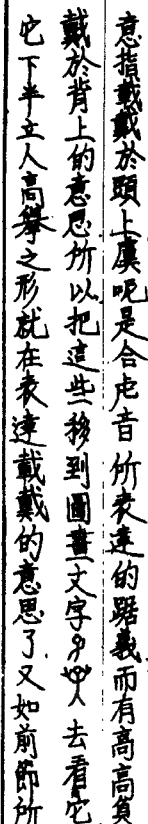 意指戴戴於頭上虞呢是合虍音所表達的踞義而有高高負
戴於背上的意思所以把這些移到圖畫文字中人去看它
它下半立人高舉之形就在表達戴戴的意思了又如前節所